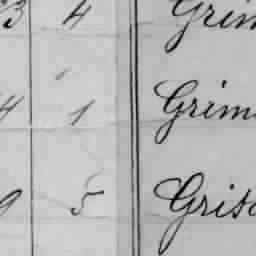 3 4 Grim
4 1 Grim
9 5 Gris